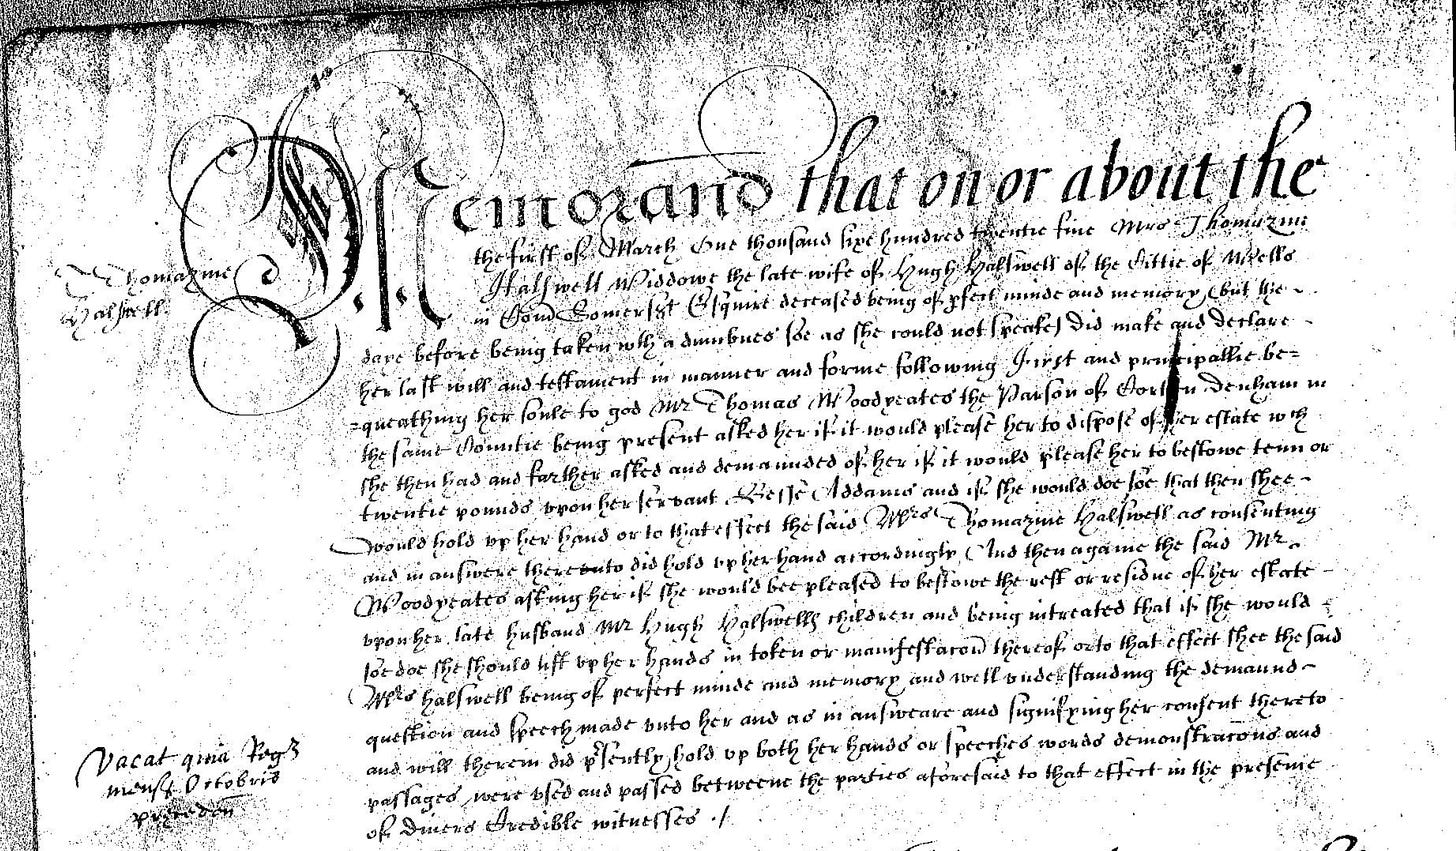 Memorand that on or about the
the first of March One thousand sixe hundred twentie five Mrs Thomazin
Thomazine
Halswell
Halswell Widdowe the late wife of Hugh Halswell of the Cittie of Wells
in Com Somerset Esquire deceased being of pfect minde and memory (but the
daye before being taken wth a dumbnes soe as she could not speake) did make and declare
her last will and testament in manner and forme following First and principallie be=
=queathing her soule to god Mr Thomas Woodyeates the Parson of Corton denham in
the same Countie being present asked her if it would please her to dispose of her estate wch
she then had and farther asked and demaunded of her if it would please her to bestowe tenn or
twentie pounds vpon her servant Besse Addams and if she would doe soe that then shee
would hold vp her hand or to that effect the said Mrs Thomazine Halswell as consenting
and in answere thereunto did hold vp her hand accordingly And then againe the said Mr
Woodyeates asking her if she would bee pleased to bestowe the rest or residue of her estate
vpon her late husband Mr Hugh Halswells children and being intreated that if she would
soe doe she should lift vp her hands in token or manifestacon thereof or to that effect shee the said
Mrs Halswell being of perfect minde and memory and well vnderstanding the demaund
question and speech made vnto her and as in answeare and signifying her consent thereto
and will therein did psently hold vp both her hands or speeches words demonstracons and
passages were vsed and passed betweene the parties aforesaid to that effect in the presence
of divers Credible witnesses ./
Vacat quia Regr
mense Octobris
preceden